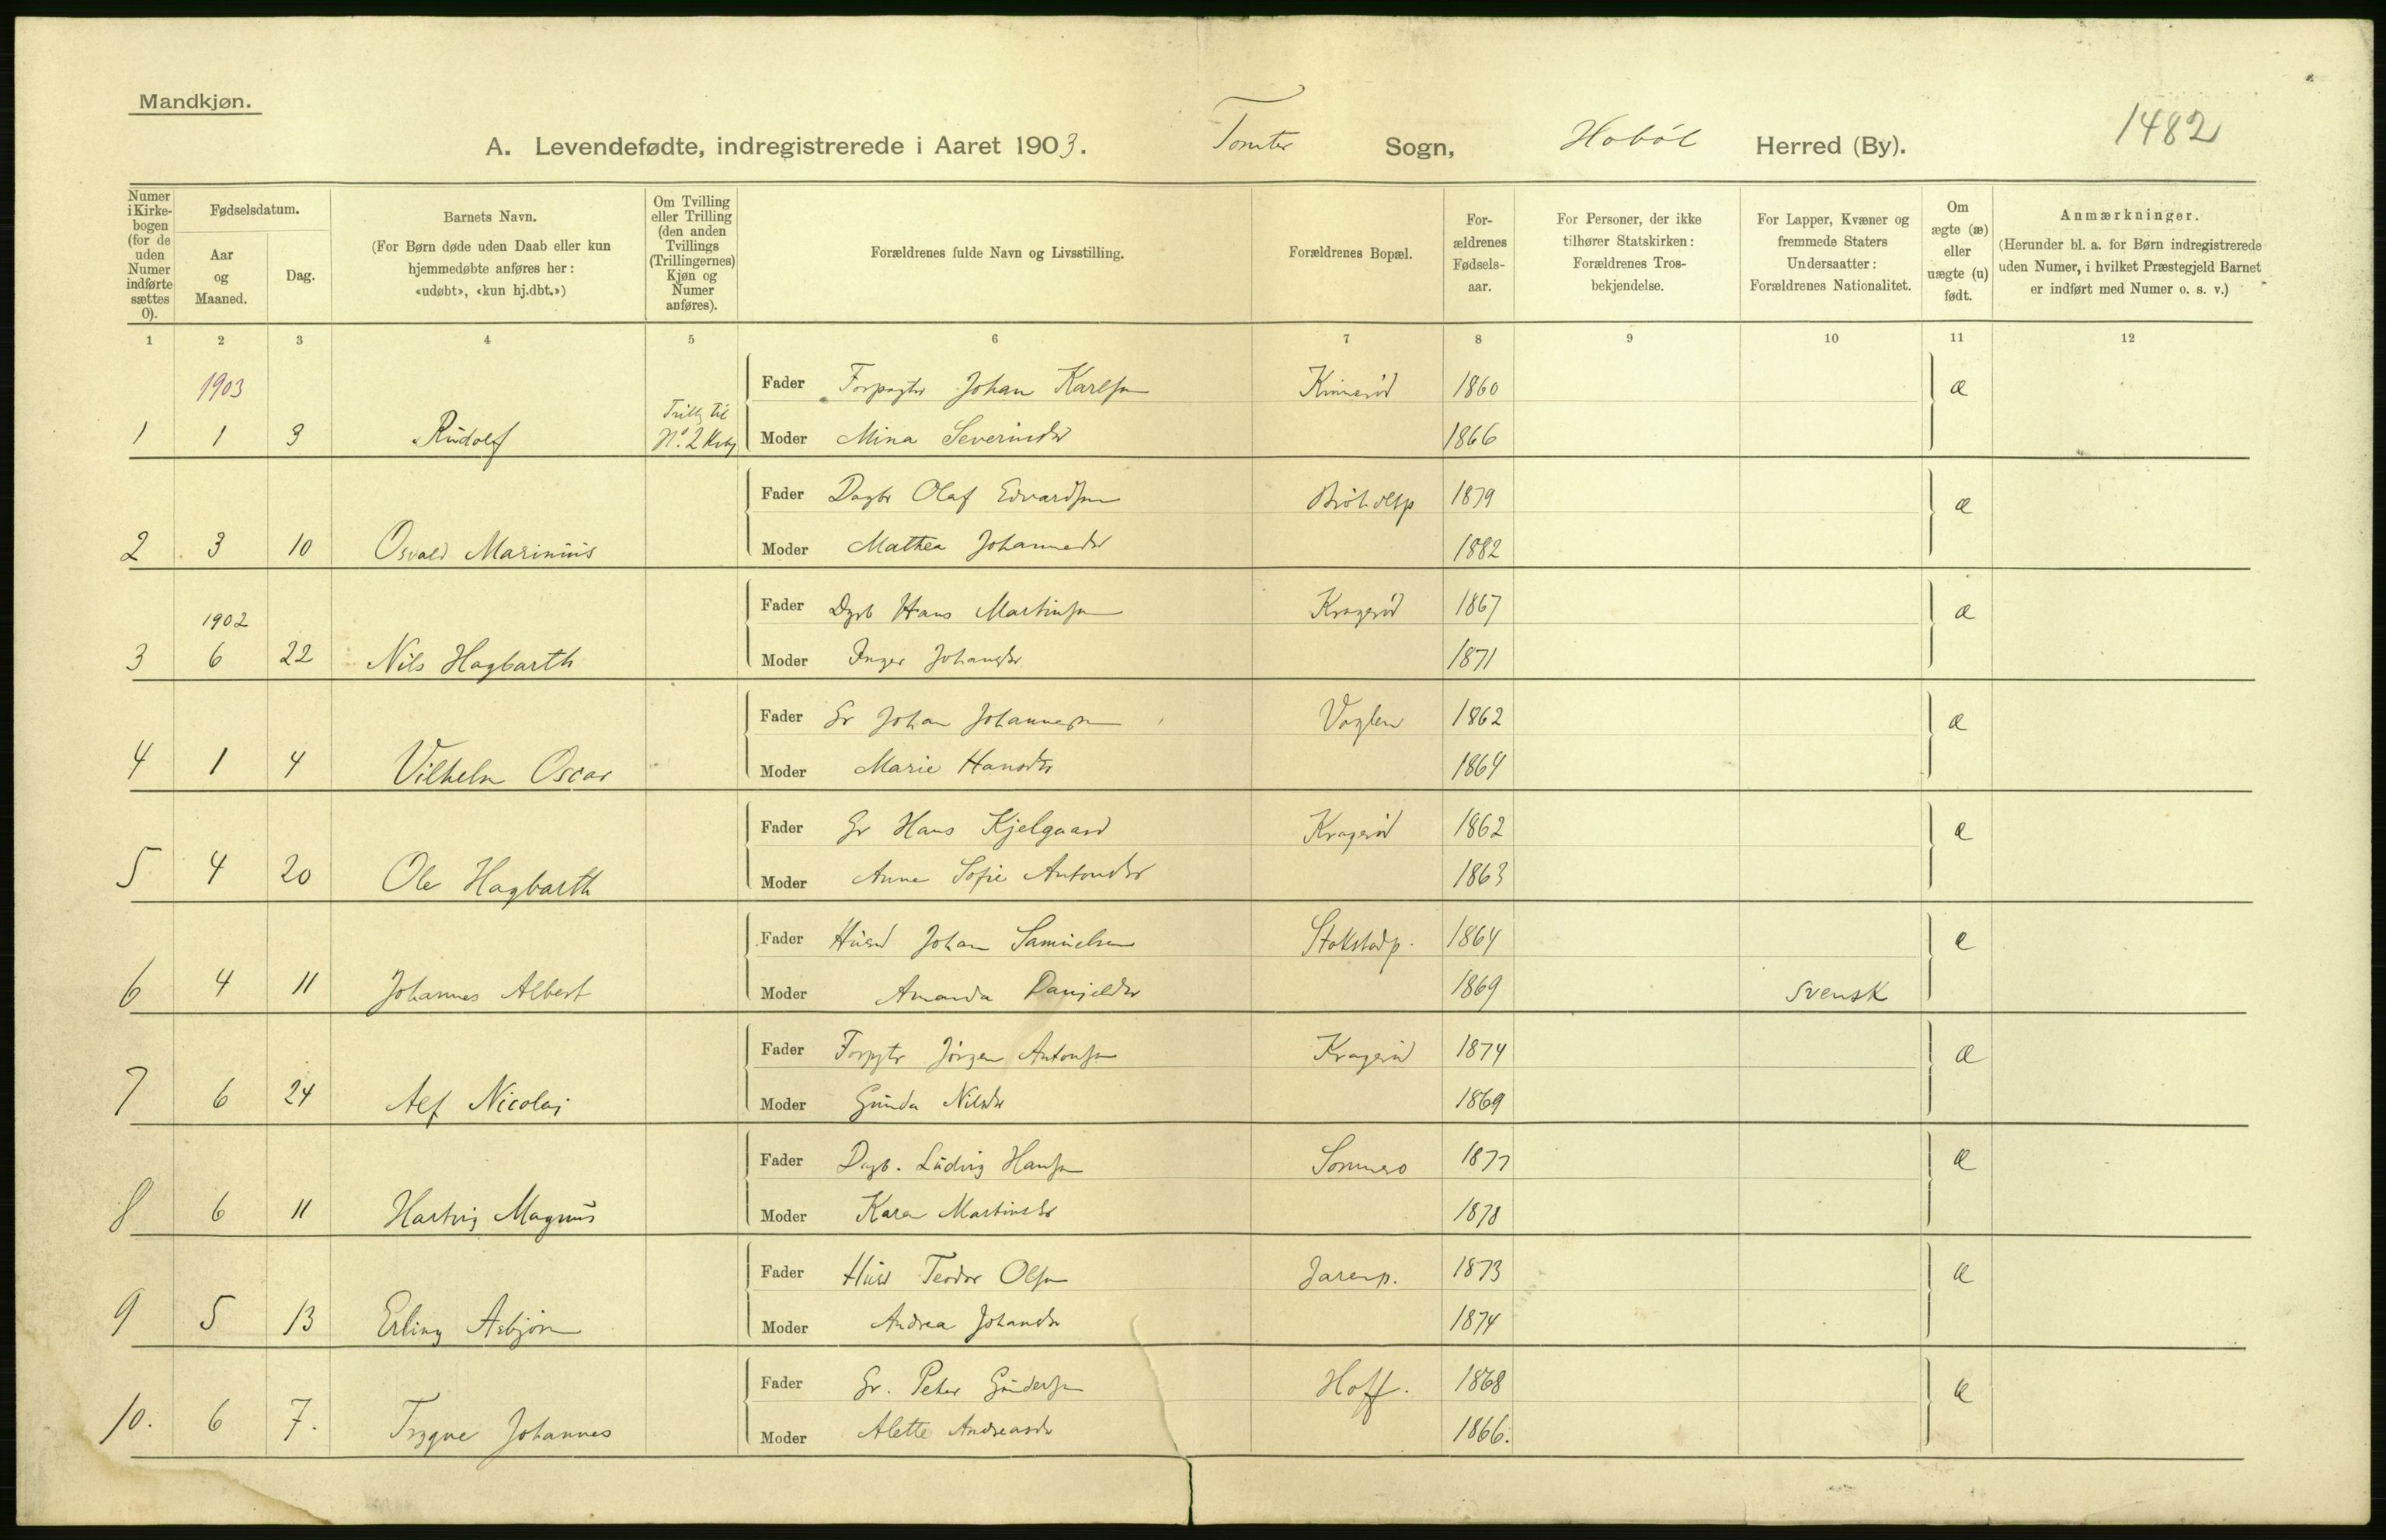 Mandkjøn.
1482
A. Levendefødte, indregistrerede i Aaret 1903. Tomter Sogn, Hobøl Herred (By).
Numer i Kirkebogen (for de uden Numer indførte sættes 0).
Fødselsdatum.
Aar og Maaned.
Dag.
Barnets Navn.
(For Børn døde uden Daab eller kun hjemmedøbte anføres her: «udøbt», «kun hj.dbt.»)
Om Tvilling eller Trilling (den anden Tvillings (Trillingernes) Kjøn og Numer anføres).
Forældrenes fulde Navn og Livsstilling.
Forældrenes Bopæl.
Forældrenes Fødselsaar.
For Personer, der ikke tilhører Statskirken: Forældrenes Trosbekjendelse.
For Lapper, Kvæner og fremmede Staters Undersaatter: Forældrenes Nationalitet.
Om ægte (æ) eller uægte (u) født.
Anmærkninger.
(Herunder bl. a. for Børn indregistrerede uden Numer, i hvilket Præstegjeld Barnet er indført med Numer o. s. v.)
1 2 3 4 5 6 7 8 9 10 11 12
1903
Fader Forpagtr Johan Karlsen Kinnerød 1860 æ
1 1 3 Rudolf No. 2 Moder Mina Severinsdr 1866
Fader Dagbr Olaf Edvardsen 1879 æ
2 3 10 Osvald Marinius Moder Mathea Johannesdr 1882
1902
Fader Dgrb Hans Martinsen Kragerød 1867 æ
3 6 22 Nils Hagbarth Moder Inger Johansdr 1871
Fader Gr Johan Johannesen Vaglen 1862 æ
4 1 4 Vilhelm Oscar Moder Marie Hansdtr 1864
Fader Gr Hans Kjelgaard Kragerød 1862 æ
5 4 20 Ole Hagbarth Moder Anne Sofie Antonsdr 1863
Fader Husmd Johan Samuelsen Stokstadp. 1864 æ
6 4 11 Johannes Albert Moder Amanda Danjelsdr 1869 Svensk
Fader Forpgtr Jørgen Antonsen Kragerød 1874 æ
7 6 24 Alf Nicolai Moder Gunda Nilsdr 1869
Fader Dagb. Ludvig Hansen Sommero 1877 æ
8 6 11 Hartvig Magnus Moder Karen Martinsdr 1878
Fader Husm Teodor Olsen Jarenp. 1873 æ
9 5 13 Erling Asbjørn Moder Andrea Johansdr 1874
Fader Gr. Peter Gundersen Hoff. 1868 æ
10. 6 7. Trygve Johannes Moder Alette Andreasdr 1866.